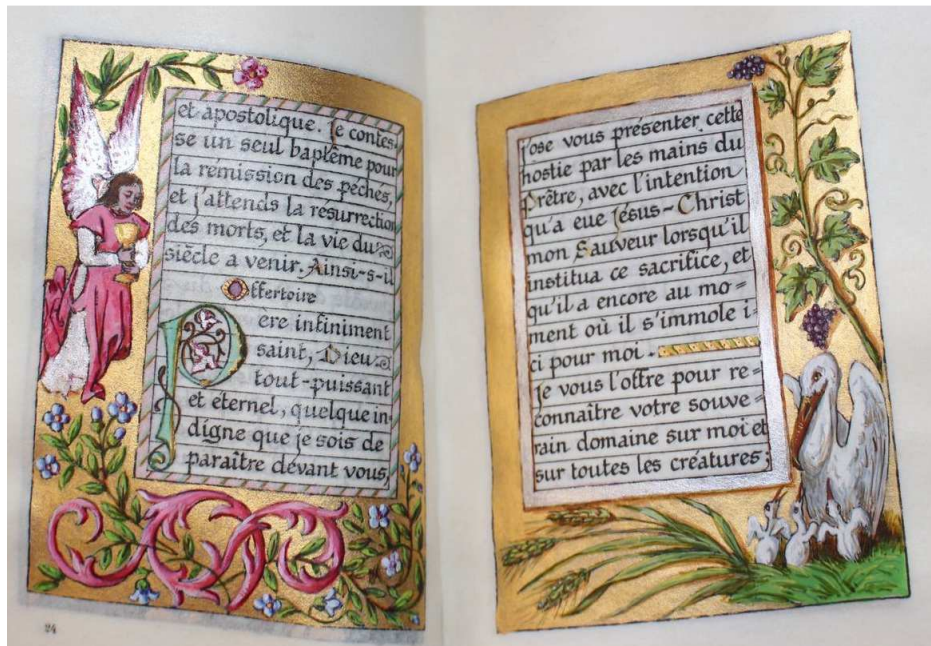 et apostolique. Je confes-
se un seul baptême pour
la rémission des péchés,
et j'attends la résurrection
des morts, et la vie du
siècle a venir. Ainsi-s-il
Offertoire
Pere infiniment
saint, Dieu
tout-puissant
et éternel, quelque in-
digne que je sois de
paraître dévant vous,
24
j'ose vous présenter cette
hostie par les mains du
Prêtre, avec l'intention
qu'a eue Jésus-Christ
mon Sauveur lorsqu'il
institua ce sacrifice, et
qu'il a encore au mo-
ment où il s'immole i-
ci pour moi.
Je vous l'offre pour re-
connaître votre souve-
rain domaine sur moi et
sur toutes les créatures;